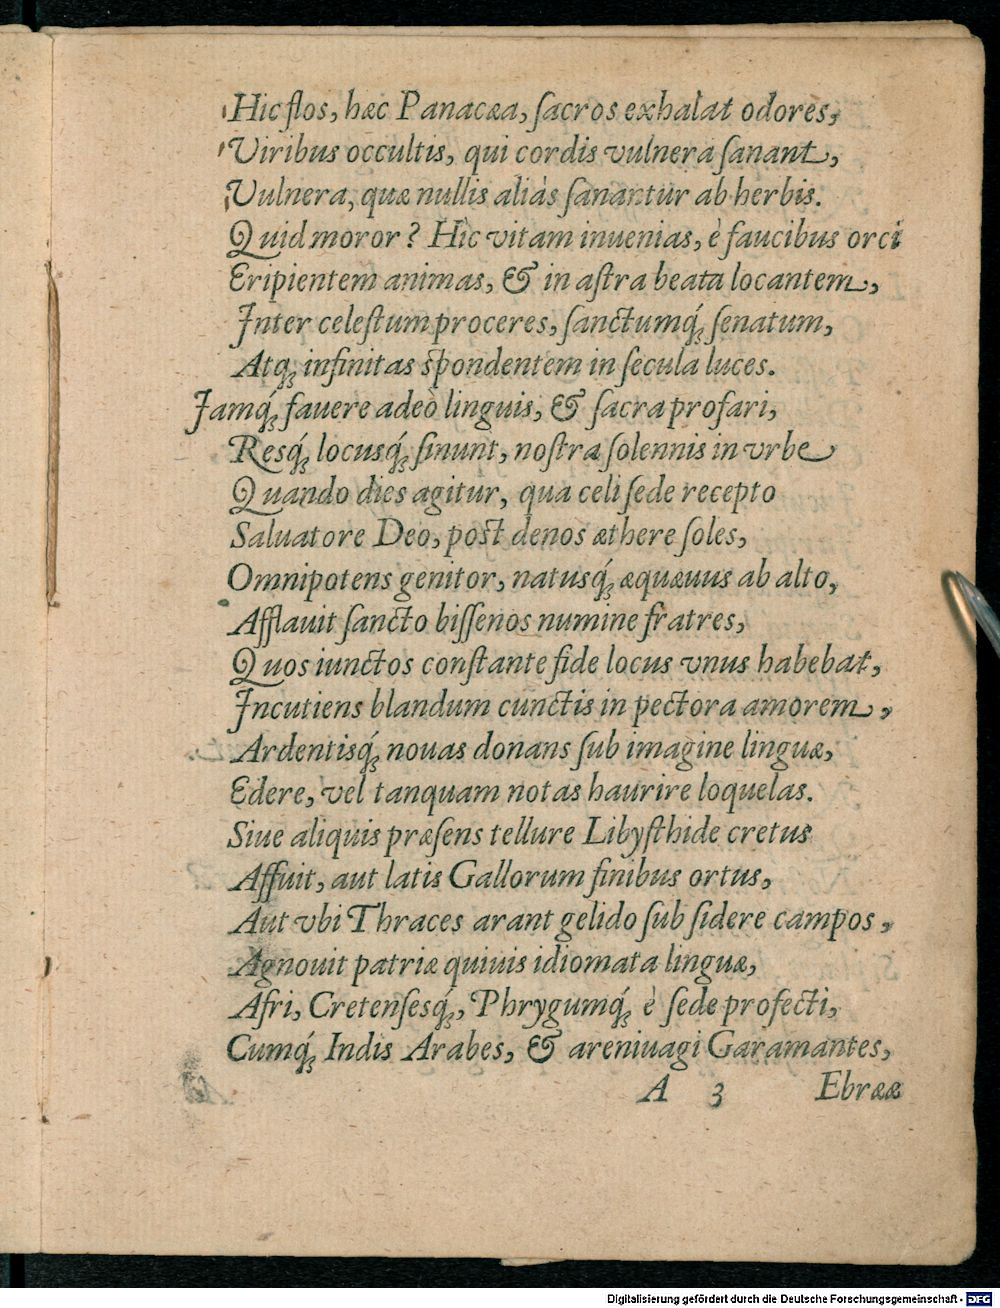 Hic flos, hæc Panacæa, ſacros exhalat odores,
Viribus occultis, qui cordis vulnera ſanant,
Vulnera, quæ nullis aliàs ſanantur ab herbis.
Quid moror? Hîc vitam inuenias, è faucibus orci
Eripientem animas, & in aſtra beata locantem,
Inter celeſtum proceres, ſanctumq́ꝫ ſenatum,
Atqꝫ infinitas ſpondentem in ſecula luces.
Iamq́ꝫ fauere adeò linguis, & ſacra profari,
Resq́ꝫ locusq́ꝫ ſinunt, noſtra ſolennis in vrbe
Quando dies agitur, qua celi ſede recepto
Saluatore Deo, post denos æthere ſoles,
Omnipotens genitor, natusq́ꝫ æquæuus ab alto,
Afflauit ſancto biſſenos numine fratres,
Quos iunctos conſtante fide locus vnus habebat,
Incutiens blandum cunctis in pectora amorem,
Ardentisq́ꝫ nouas donans ſub imagine linguæ,
Edere, vel tanquam notas haurire loquelas.
Siue aliquis præſens tellure Libyſthide cretus
Affuit, aut latis Gallorum finibus ortus,
Aut vbi Thraces arant gelido ſub ſidere campos,
Agnouit patriæ quiuis idiomata linguæ,
Afri, Cretenſesq́ꝫ, Phrygumq́ꝫ è ſede profecti,
Cumq́ꝫ Indis Arabes, & areniuagi Garamantes,
A 3 Ebrææ
Digitalisierung gefördert durch die Deutsche Forschungsgemeinschaft - DFG